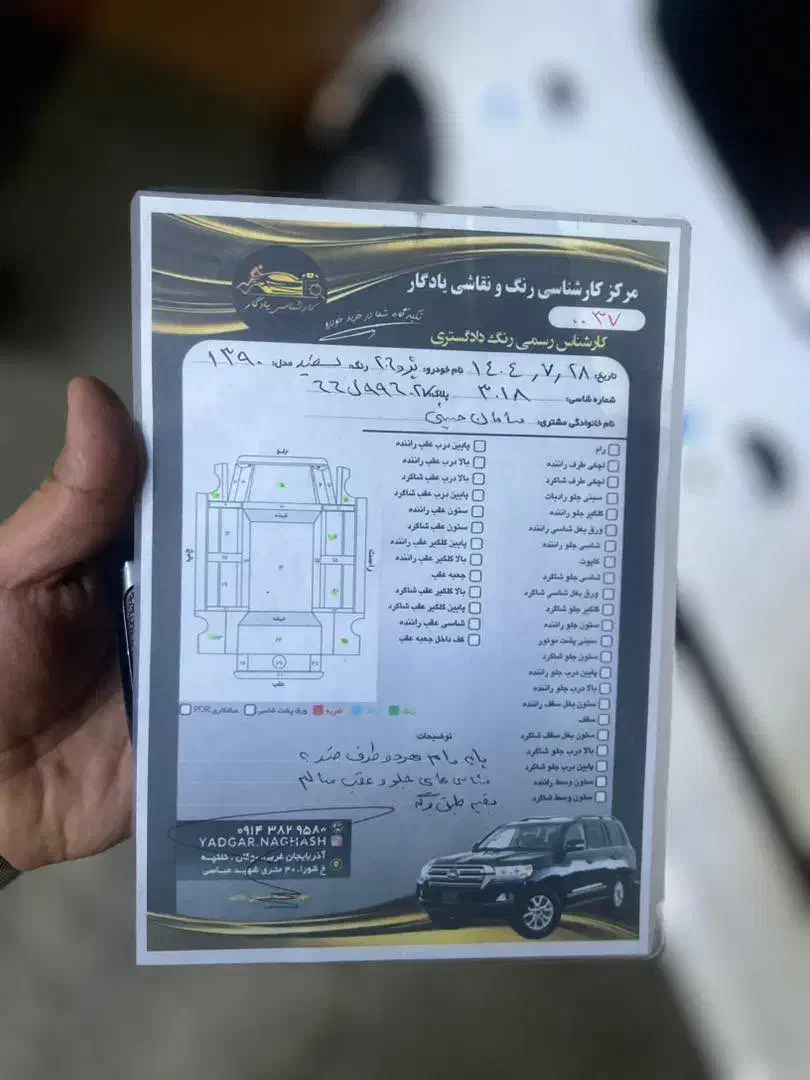 مرکز کارشناسی رنگ و نقاشی یادگار
کارشناسی یادگار
تکیه گاه شما در خرید خودرو
۰۰۳۷
کارشناس رسمی رنگ دادگستری
تاریخ: ۱۴۰۴/۷/۲۸ نام خودرو: پژو ۲۰۶ رنگ: سفید مدل: ۱۳۹۰
شماره شاسی: ۳۰۱۸ پلاک:
نام خانوادگی مشتری: سامان حسینی
رام
لچکی طرف راننده
لچکی طرف شاگرد
سینی جلو رادیات
گلگیر جلو راننده
ورق بغل شاسی راننده
شاسی جلو راننده
کاپوت
شاسی جلو شاگرد
ورق بغل شاسی شاگرد
گلگیر جلو شاگرد
ستون جلو راننده
سینی پشت موتور
ستون جلو شاگرد
پایین درب جلو راننده
بالا درب جلو راننده
ستون بغل سقف راننده
سقف
ستون بغل سقف شاگرد
بالا درب جلو شاگرد
پایین درب جلو شاگرد
ستون وسط راننده
ستون وسط شاگرد
پایین درب عقب راننده
بالا درب عقب راننده
بالا درب عقب شاگرد
پایین درب عقب شاگرد
ستون عقب راننده
ستون عقب شاگرد
پایین گلگیر عقب راننده
بالا گلگیر عقب راننده
جعبه عقب
بالا گلگیر عقب شاگرد
پایین گلگیر عقب شاگرد
شاسی عقب راننده
کف داخل جعبه عقب
جلو
شیشه
چپ
راست
شیشه
عقب
رنگ
ضربه
ورق پشت شاسی
صافکاری PDR
توضیحات
پایه رام هر دو طرف ضربه
شاسی های جلو و عقب سالم
بقیه طبق برگه
۰۹۱۴ ۳۸۲ ۹۵۸۰
YADGAR.NAGHASH
خ شورا، ۳۰ متری شهید عباسی